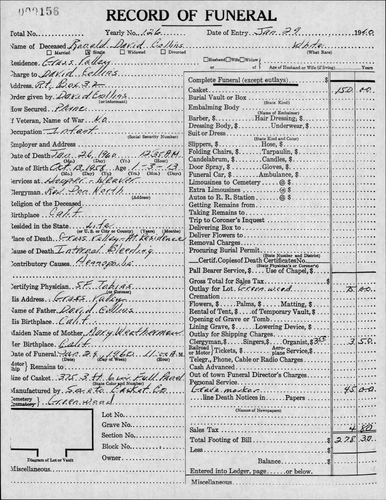 000156
RECORD OF FUNERAL
Total No. Yearly No. 126 Date of Entry Jan. 29 1960
Name of Deceased Ronald David Collins White
Married Single Widowed Divorced (What Race)
Residence Grass Valley Husband Wife Widow
Charge to David Collins of Age of Husband or Wife (if living) Years
Address Rt. Box 32
Order given by David Collins
(or informant)
How Secured
If Veteran, Name of War no
Occupation Infant
(Social Security Number)
Employer and Address
Date of Death Jan. 26, 1960 12:55 P.M.
Date of Birth Oct. 13, 1959 Age 3 - 13
Services at Hooper & Weaver
Clergyman Rev. Don North
Religion of the Deceased
Birthplace Calif
Resided in the State Life
Place of Death Grass Valley - At Residence
Cause of Death Internal Bleeding
Contributory Causes
Certifying Physician S.F. Tobias
His Address Grass Valley
Name of Father David Collins
His Birthplace Calif.
Maiden Name of Mother Mary
Her Birthplace Calif
Date of Funeral Jan. 29 1960 11:00 A.M.
Remains to
Size of Casket
(State Color and Number)
Manufactured by Casket Co.
Cemetery Greenwood
Lot No.
Grave No.
Section No.
Block No.
Owner
Diagram of Lot or Vault
Miscellaneous
Complete Funeral (except outlays) $
Casket 150 00
Burial Vault or Box
(State Kind)
Embalming Body
Barber, $ Hair Dressing, $
Dressing Body, $ Underwear, $
Suit or Dress
(State Kind and Color)
Slippers, $ Hose, $
Folding Chairs, $ Tarpaulin, $
Candelabrum, $ Candles, $
Door Spray, $ Gloves, $
Funeral Car, $ Ambulance, $
Limousines to Cemetery @ $
Extra Limousines @ $
Autos to R. R. Station @ $
Getting Remains from
Taking Remains to
Trip to Coroner's Inquest
Delivering Box to
Deliver Flowers to
Removal Charges
Procuring Burial Permit
(State Number and District)
Certif. Copies of Death Certificates No.
(State Physician's or Coroner's)
Pall Bearer Service, $ Use of Chapel, $
Gross Total for Sales Tax $
Outlay for Lot Greenwood 75 00
Cremation
Flowers, $ Palms, $ Matting, $
Rental of Tent, $ of Temporary Vault, $
Opening of Grave or Tomb
Lining Grave, $ Lowering Device, $
Outlay for Shipping Charges
Clergyman, $ Singers, $ Organist, $ 3.50 3 50
Railroad or Motor Tickets, $ Aero Service, $
Telegr., Phone, Cable or Radio Charges
Cash Advanced
Out of town Funeral Director's Charge
Personal Service
Grave marker 45 00
line Death Notices in Papers
(Names of Newspapers)
Sales Tax 4 80
Total Footing of Bill $ 278 30
Less
Balance $
Entered into Ledger, page or below.
Miscellaneous